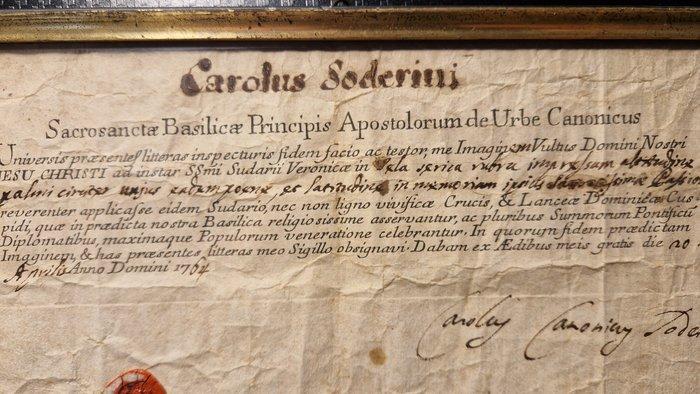 Carolus Soderini
Sacrosanctæ Basilicæ Principis Apostolorum de Urbe Canonicus
Universis præsentes litteras inspecturis fidem facio ac testor, me Imaginem Vultus Domini Nostri
JESU CHRISTI ad instar SSmi Sudarii Veronicæ in tela serica rubra impressum altitudine
palmi circiter unius eadem et latitudine in memoriam ipsius Passio
reverenter applicasse eidem Sudario, nec non ligno vivificæ Crucis, & Lanceæ Dominicæ Cus
pidi, quæ in prædicta nostra Basilica religiosissime asservantur, ac pluribus Summorum Pontificũ
Diplomatibus, maximaque Populorum veneratione celebrantur. In quorum fidem prædictam
Imaginem, & has præsentes litteras meo Sigillo obsignavi. Dabam ex Ædibus meis gratis die 20
Aprilis Anno Domini 1764
Carolus Canonicus Soder